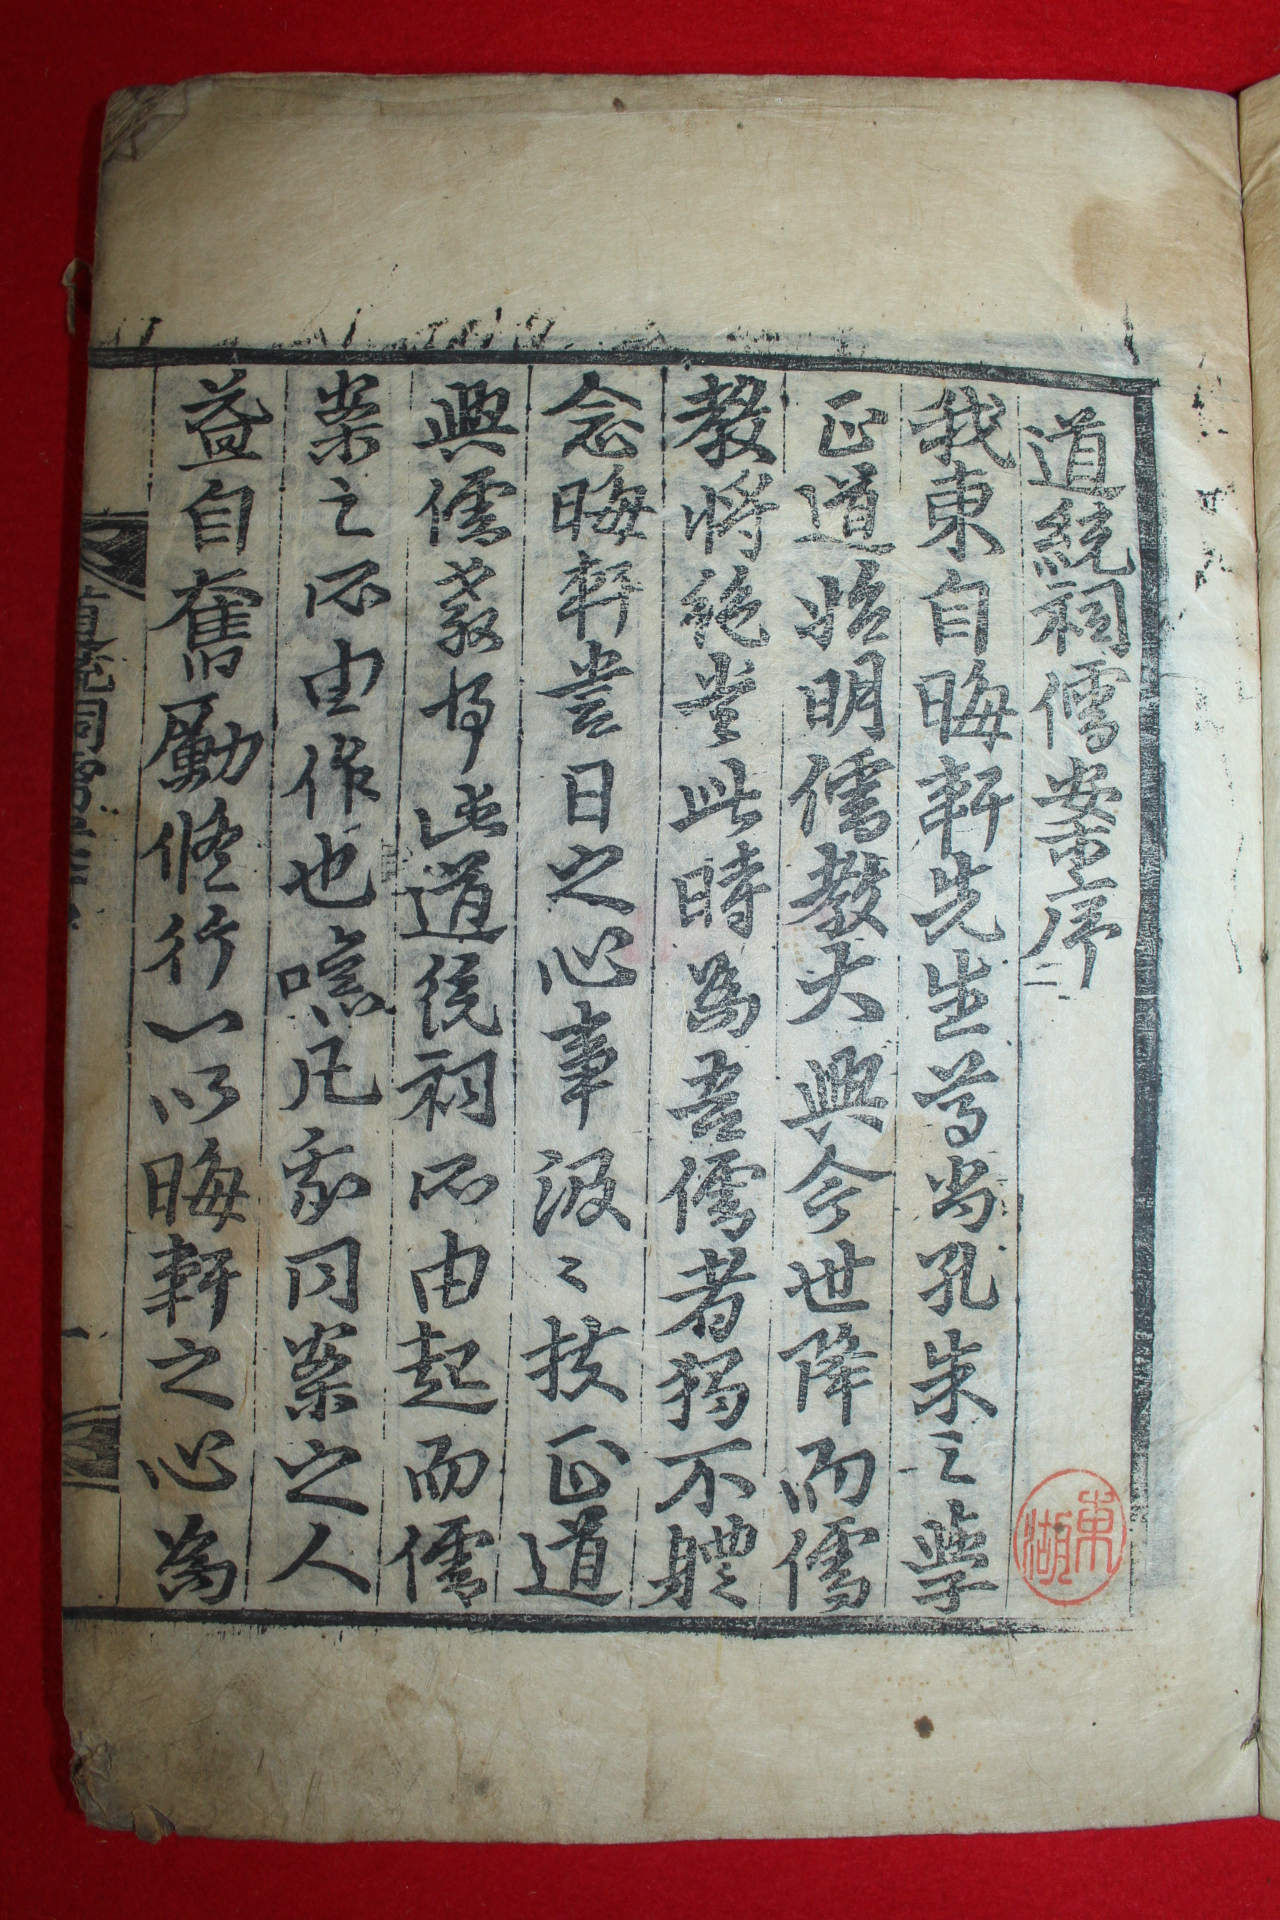 道統祠儒案序
我東自晦軒先生尊尚孔朱之學
正道始明儒教大興今世降而儒
教將絶當此時爲吾儒者獨不體
念晦軒當日之心事汲〻扶正道
興儒教乎此道統祠所由起而儒
案之所由作也噫凡我同案之人
益自奮勵修行一以晦軒之心爲
道統祠儒
東湖